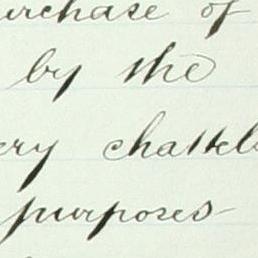 purchase of
by the
ery chattels
purposes